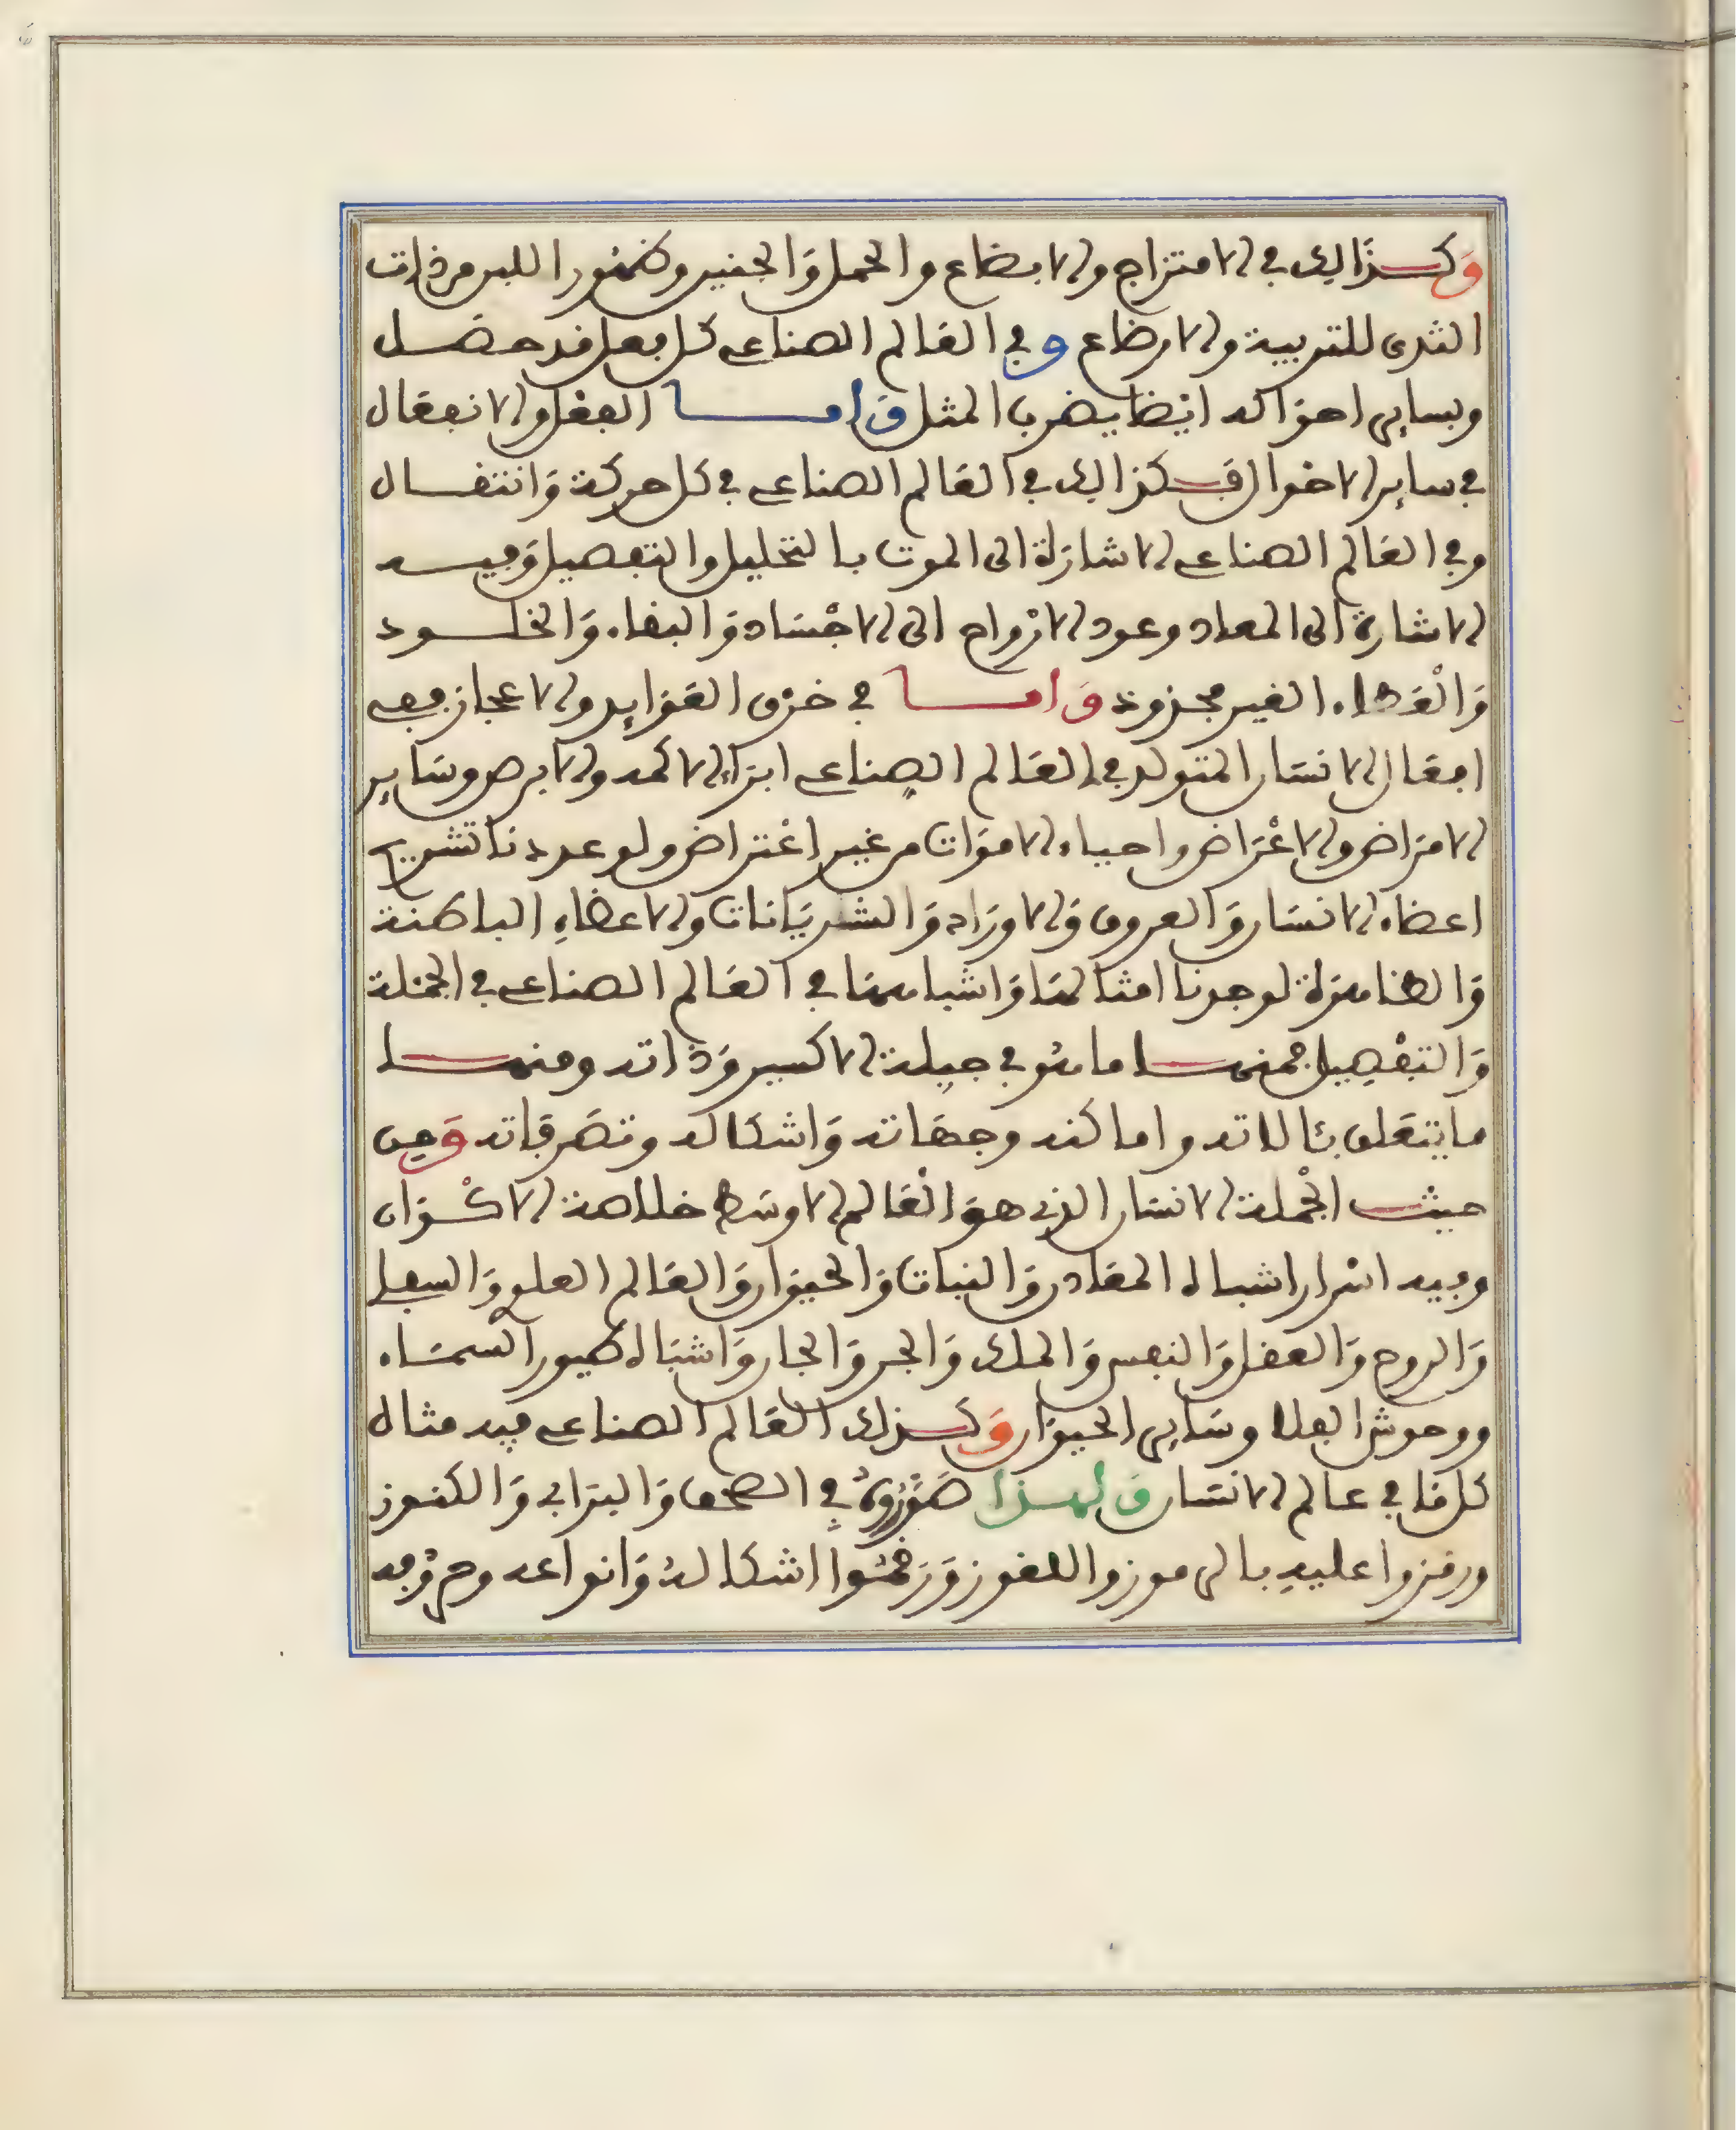 وكذالك في الامتزاج والابضاع والحمل والجنين وظهور اللبن من ذات
الثدي للتربية والارضاع وفي العالم الصناعي كل فعل قد حصل
وبساير احواله ايضا يضرب المثل واما الفعل والانفعال
في ساير الاحوال فكذالك في العالم الصناعي في كل حركة وانتقال
وفي العالم الصناعي الاشارة الى الموت بالتحليل والتفصيل وفيه
الاشارة الى المعاد وعود الارواح الى الاجساد والبقاء والخلود
والعطاء الغير مجذوذ واما في خرق العوايد والاعجاز ففي
افعال الانسان المتولد في العالم الصناعي ابراء الاكمه والابرص وساير
الامراض والاعراض واحياء الاموات من غير اعتراض ولو عددنا تشريح
اعضاء الانسان والعروق والاوراد والشريانات والاعضاء الباطنة
والظاهرة لوجدنا امثالها واشباهها في العالم الصناعي في الجملة
والتفصيل فمنها ما هو في جبلة الاكسير وذاته ومنها
ما يتعلق بئالاته واماكنه وجهاته واشكاله وتصرفاته ومن
حيث الجملة الانسان الذي هو العالم الاوسط خلاصة الاكوان
وفيه اسرار اشباه المعادن والنبات والحيوان والعالم العلوي والسفلي
والروح والعقل والنفس والملك والجن والجان واشباه طيور السماء
ووحوش الفلا وساير الحيوان وكذلك العالم الصناعي فيه مثال
كل ما في عالم الانسان ولهذا صوروه في الصحف والبرابي والكنوز
ورمزوا عليه بالرموز واللغوز ورقموا اشكاله وانواعه وحروفه